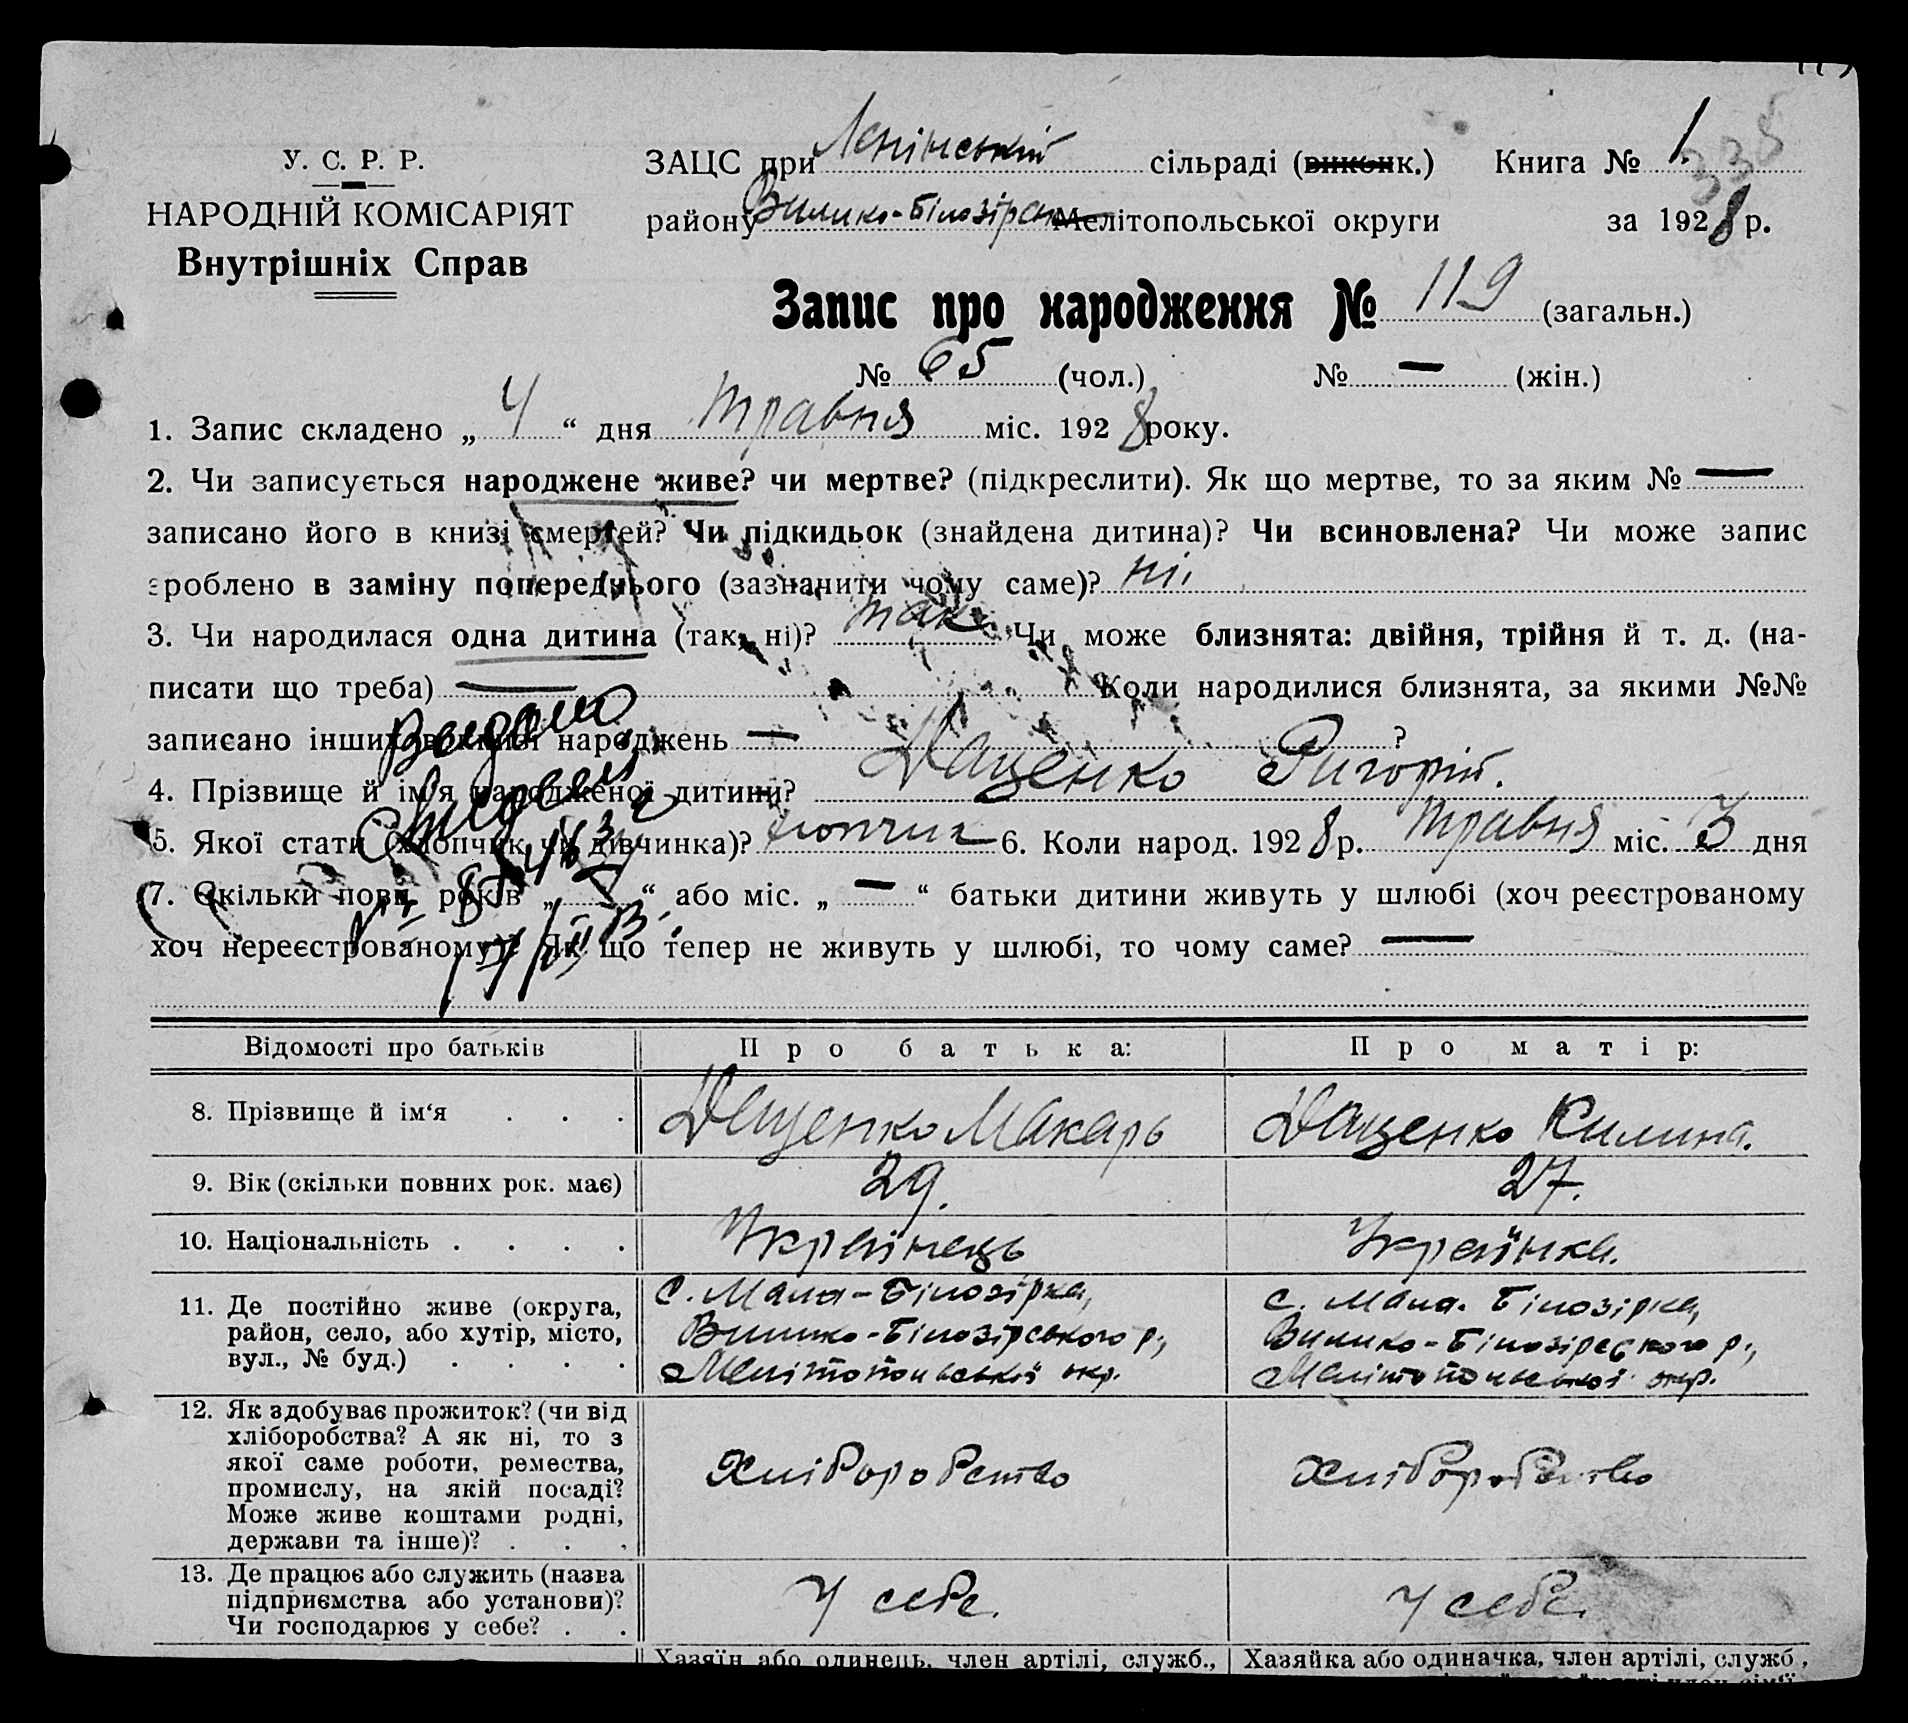 У. С. Р. Р.
НАРОДНІЙ КОМІСАРІЯТ
Внутрішніх Справ
ЗАЦС при Ленінській сільраді (виконк.) Книга № 1.
338
району Вилико-Білозірськ Мелітопольської округи за 1928 р.
Запис про народження № 119 (загальн.)
№ 65 (чол.) № — (жін.)
1. Запис складено „ 4 “ дня Травня міс. 1928 року.
2. Чи записується народжене живе? чи мертве? (підкреслити). Як що мертве, то за яким № —
записано його в книзі смертей? Чи підкидьок (знайдена дитина)? Чи всиновлена? Чи може запис
зроблено в заміну попереднього (зазначити чому саме)? ні.
3. Чи народилася одна дитина (так, ні)? так Чи може близнята: двійня, трійня й т. д. (на-
писати що треба) — Коли народилися близнята, за якими №№
записано інших в книзі народжень — ?
4. Прізвище й ім'я народженої дитини? Даценко Ригорій.
5. Якої стати (хлопчик чи дівчинка)? хлопчик 6. Коли народ. 1928 р. Травня міс. 3 дня
7. Скільки повн. років „ “ або міс. „ — “ батьки дитини живуть у шлюбі (хоч реєстрованому
хоч нереєстрованому)? Як що тепер не живуть у шлюбі, то чому саме? —
Відомості про батьків Про батька: Про матір:
8. Прізвище й ім‘я . . . Даценко Макарь Даценко Килина.
9. Вік (скільки повних рок. має) 29. 27.
10. Національність . . . . Українець Українка.
11. Де постійно живе (округа, с. Мала-Білозірка, с. Мала. Білозірка,
район, село, або хутір, місто, Вилико-Білозірського р., Вилико-Білозірського р.,
вул., № буд.) . . . . Мелітопольської окр. Мелітопольської окр.
12. Як здобуває прожиток? (чи від
хліборобства? А як ні, то з
якої саме роботи, ремества, Хліборобство Хліборобство
промислу, на якій посаді?
Може живе коштами родні,
держави та інше)? . . .
13. Де працює або служить (назва
підприємства або установи)? У себе. У себе.
Чи господарює у себе? . .
Хазяїн або одинець, член артілі, служб., Хазяйка або одиначка, член артілі, служб.,